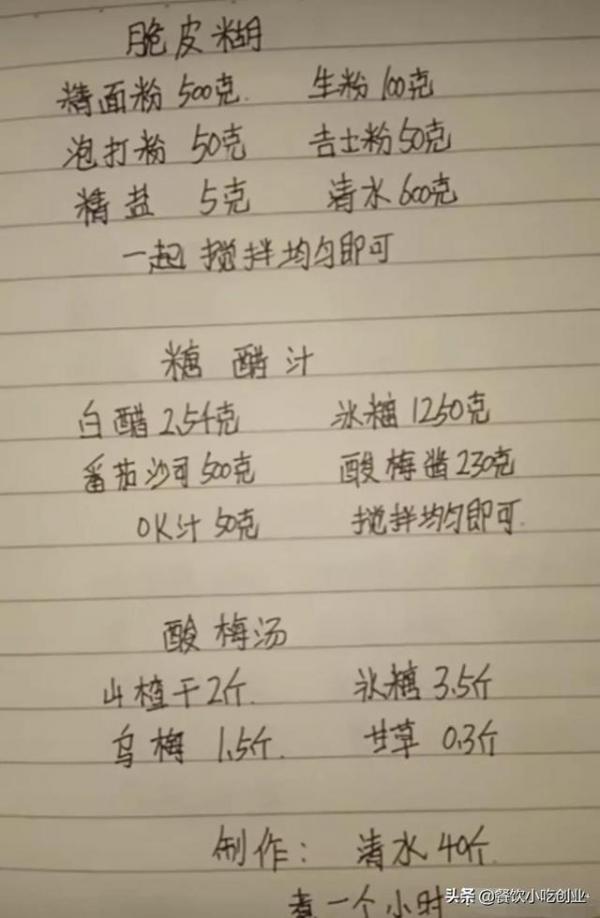 脆皮糊
精面粉 500克 生粉 100克
泡打粉 50克 吉士粉 50克
精盐 5克 清水 600克
一起 搅拌均匀即可
糖醋汁
白醋 2.54克 冰糖 1250克
番茄沙司 500克 酸梅酱 230克
OK汁 50克 搅拌均匀即可.
酸梅汤
山楂干 2斤. 冰糖 3.5斤
乌梅 1.5斤. 甘草 0.3斤
制作: 清水 40斤.
煮一个小时
头条 @餐饮小吃创业